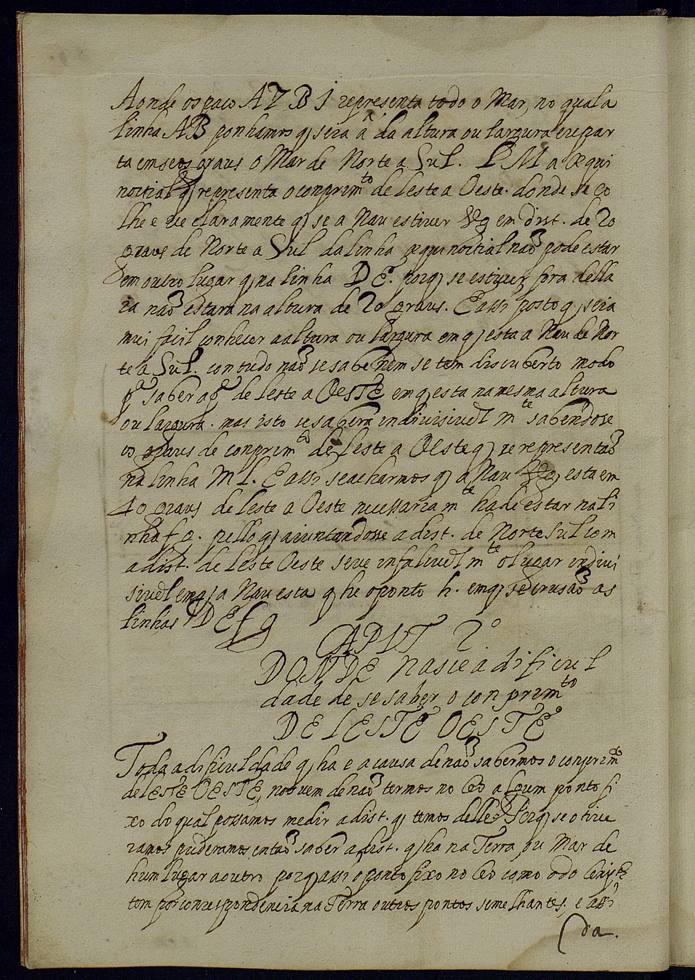 Aonde o spaco A Z B 1 representa todo o Mar, no qual a
linha AB ponhamos q̃ seia a da altura ou largura e repar
ta em seos graus o Mar de Norte a Sul. L M a equi
noctial q̃ representa o comprim.to de leste a Oeste. donde se co
lhe e ve claramente q̃ se a Nau estiver em dist. de 20
graus de Norte a Sul da linha equinoctial naõ pode estar
em outro lugar q̃ na linha D E. porq̃ se estiver fora della
ia naõ estara na altura de 20 graus. E assi posto q̃ seia
mui facil conhecer a altura ou largura em q̃ esta a Nau de Nor
te a Sul. com tudo naõ se sabe nem se tem discuberto modo
p.a saber a q̃ de leste a OesTE em q̃ esta na mesma altura
ou largura. mas isto se sabera indivisivelm.te sabendose
os graus de comprim.to de leste a Oeste q̃ se representaõ
na linha M L. E assi se acharmos q̃ a Nau esta em
40 graus de leste a Oeste necessariam.te ha de estar na li
nha f g. pello q̃ aiuntandose a dist. de Norte Sul com
a dist. de leste Oeste se ve infalivelm.te o lugar indivi
sivel em q̃ a Nau esta q̃ he o ponto h. em q̃ se crusaõ as
linhas D E f g
CAPIT 2º
DONDE nasce a dificul
dade de se saber o comprim.to
DE LESTE OESTE
Toda a dificuldade q̃ ha e a causa de naõ sabermos o comprim.to
de LESTE OESTE, nos vem de naõ termos no Ceo algum ponto fi
xo do qual possamos medir a dist. q̃ temos delle. Porq̃ se o tive
ramos puderamos entaõ saber a dist. q̃ ha na Terra ou Mar de
hum lugar a outro porq̃ assi o ponto fixo no Ceo como o do
tem por correspondencia na Terra outros pontos semelhantes. e assi
da.